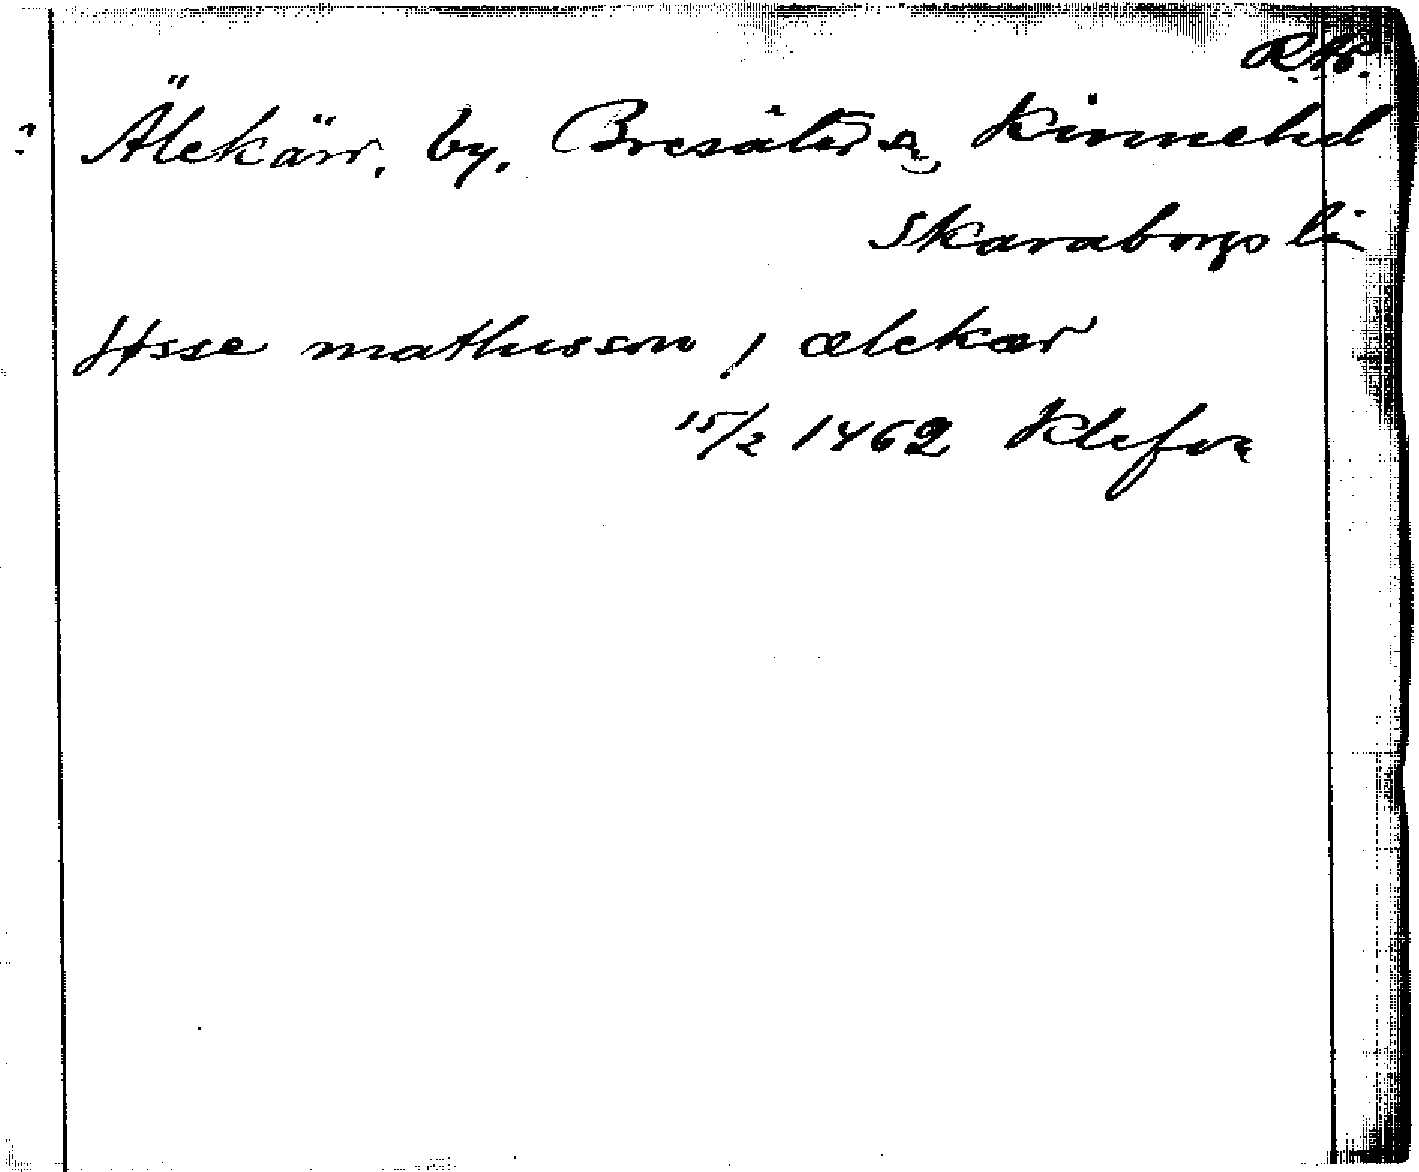 R.A.
? Älekärr, by, Bresäters sn, Kinnehd
Skaraborgs län
Josse mathusson j ælekær
15/2 1462 Klefva